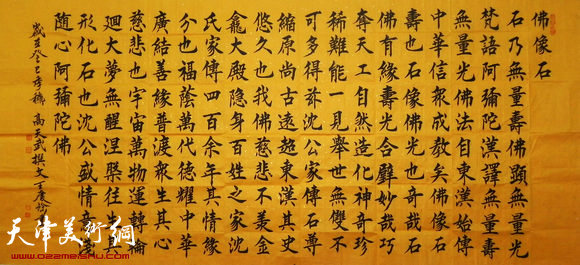 佛像石
石乃無量壽佛顯無量光
梵語阿彌陀漢譯無量壽
無量光佛法自東漢始傳
中華信衆成教矣佛像
壽也佛光也奇哉
佛有緣壽光合璧妙哉巧
奪天工自然造化神奇珍
稀難能一見舉世無雙不
可多得茲沈公家傳石尊
縮原尚古遠超東漢其史
悠久也我佛慈悲不羨金
龕大殿隱身百姓之家沈
氏家傳四百余年其情緣
分也福蔭萬代德耀中華
廣結善緣普渡衆生其心
慈悲也宇宙萬物運轉輪
迴大夢無醒涅槃往其
形化石也沈公盛情奇
随心阿彌陀佛
歲在癸巳 高天武撰文
天津美術網
www.022meishu.com